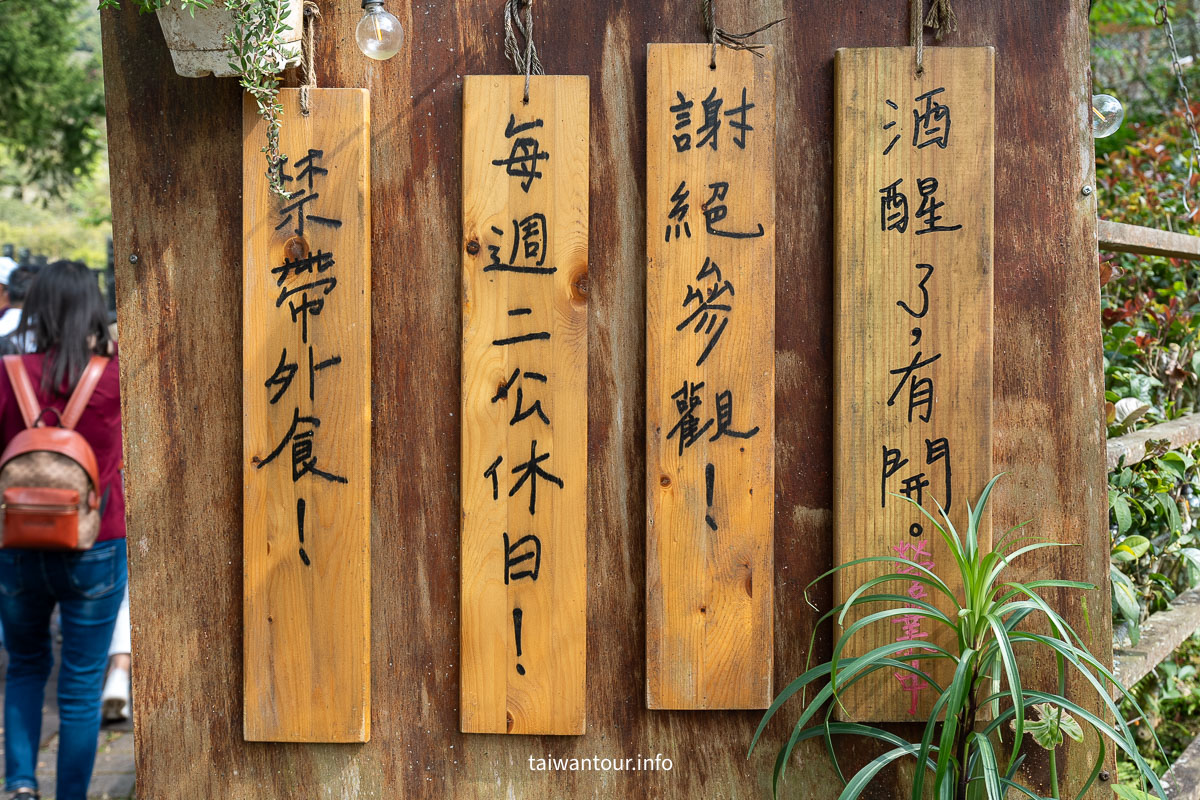 酒醒了,有開。
謝絕參觀!
每週二公休日!
禁帶外食!
taiwantour.info